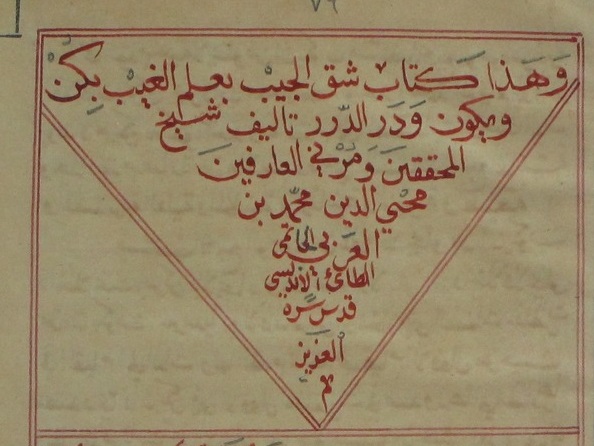 ٧٩
وَهَذا كتاب شق الجيب بعلم الغيب بكن
ويكون وَدَر الدّرر تاليف شيخ
المحققينَ وَمُربي العارفينَ
محيي الدين محمّد بن
العربي الحاتمي
الطائي الأندلسي
قدس سره
العزيز
م